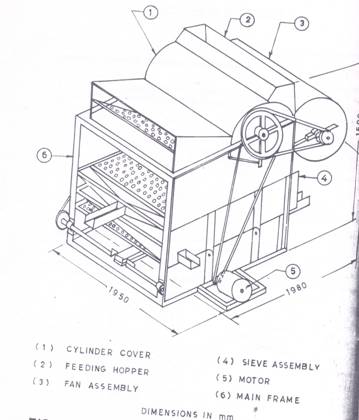 1
2
3
6
4
5
1950
1980
(1) CYLINDER COVER
(2) FEEDING HOPPER
(3) FAN ASSEMBLY
(4) SIEVE ASSEMBLY
(5) MOTOR
(6) MAIN FRAME
DIMENSIONS IN mm